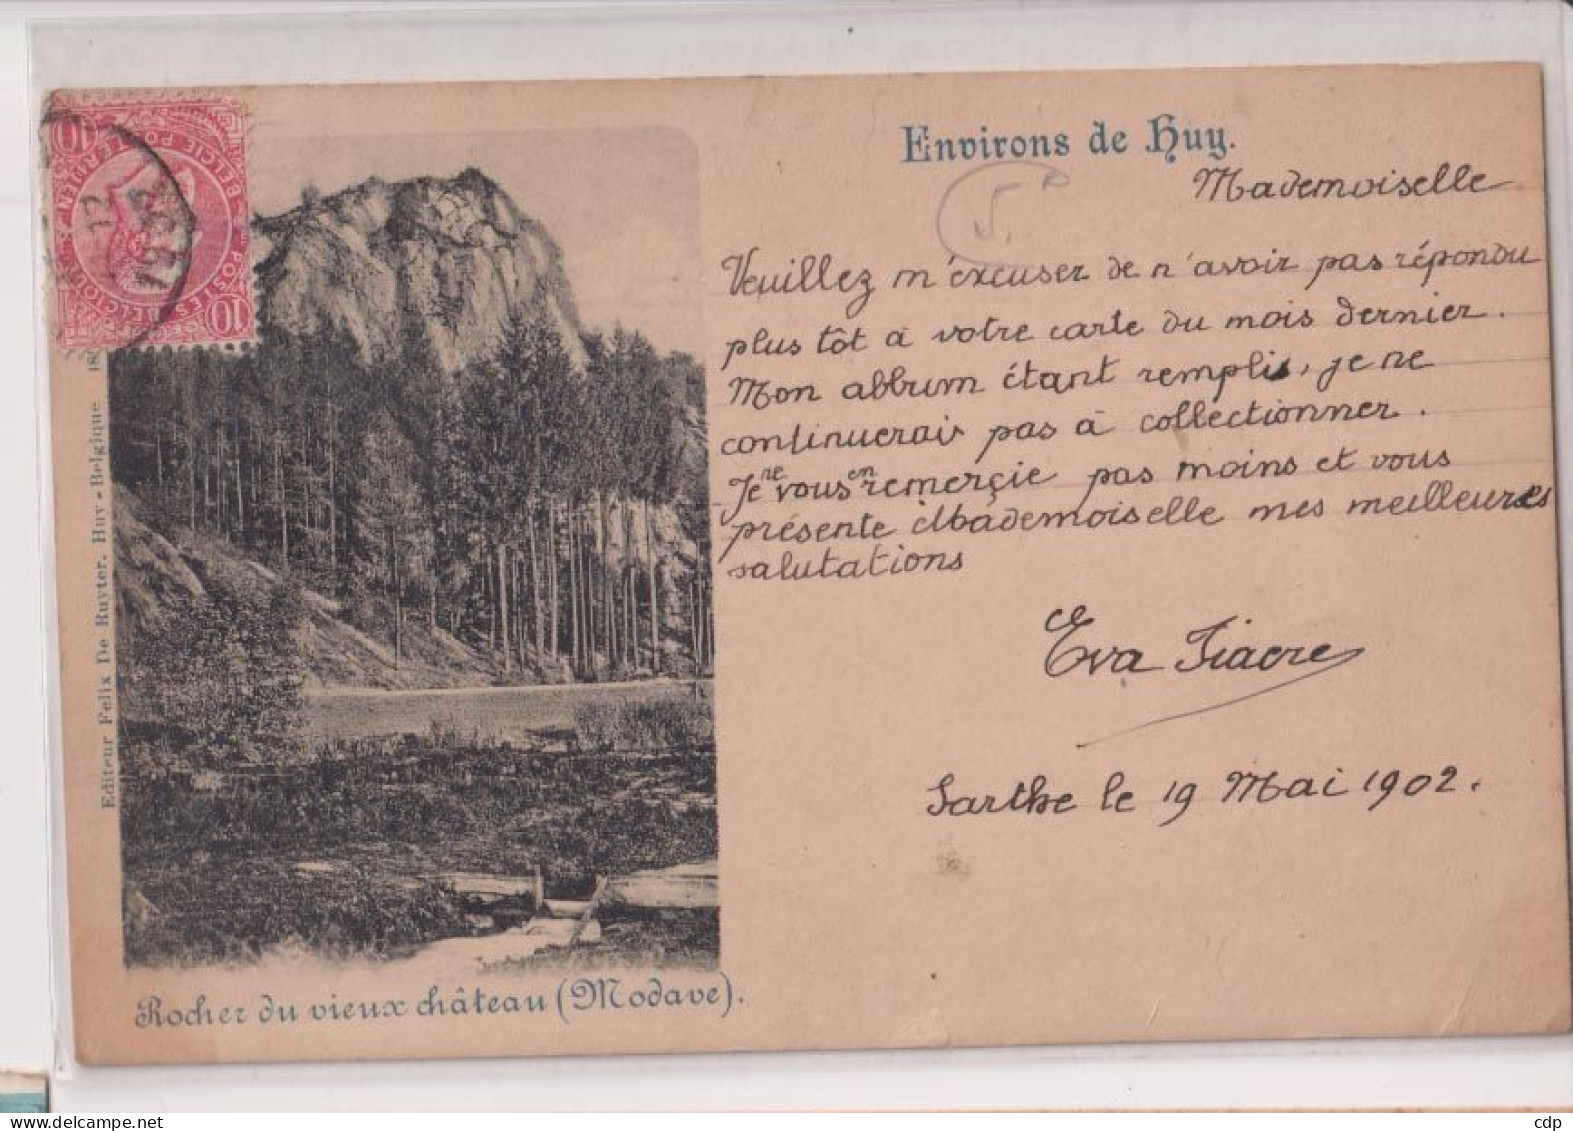 Environs de Huy.
Mademoiselle
Veuillez m'excuser de n'avoir pas répondu
plus tôt à votre carte du mois dernier.
Mon abbum étant remplis, je ne
continuerais pas à collectionner.
Je ne vous en remerçie pas moins et vous
présente Mademoiselle mes meilleures
salutations
Eva Fiacre
Sarthe le 19 Mai 1902.
Rocher du vieux château (Modave).
Editeur Felix De Ruyter, Huy-Belgique
10
BELGIE POSTERIJEN
POSTES BELGIQUE
10
12
5.
cdp